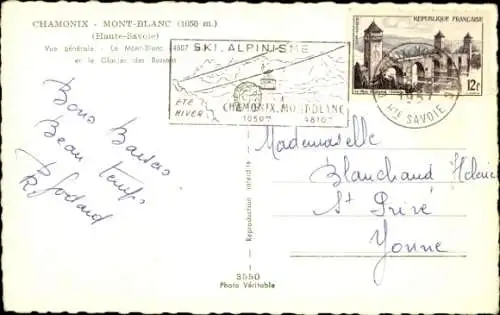 CHAMONIX - MONT-BLANC (1050 m.)
(Haute-Savoie)
Vue générale - Le Mont-Blanc 4807
et le Glacier des Bossons
SKI. ALPINISME
ETE
HIVER
CHAMONIX. MONT-BLANC
1050m 4810m
REPUBLIQUE FRANÇAISE
12F
1957
HTE SAVOIE
Bons Baisers
Beau temps
R. Godard
Mademoiselle
Blanchaud Hélène
St Privé
Yonne
Reproduction interdite
3550
Photo Véritable